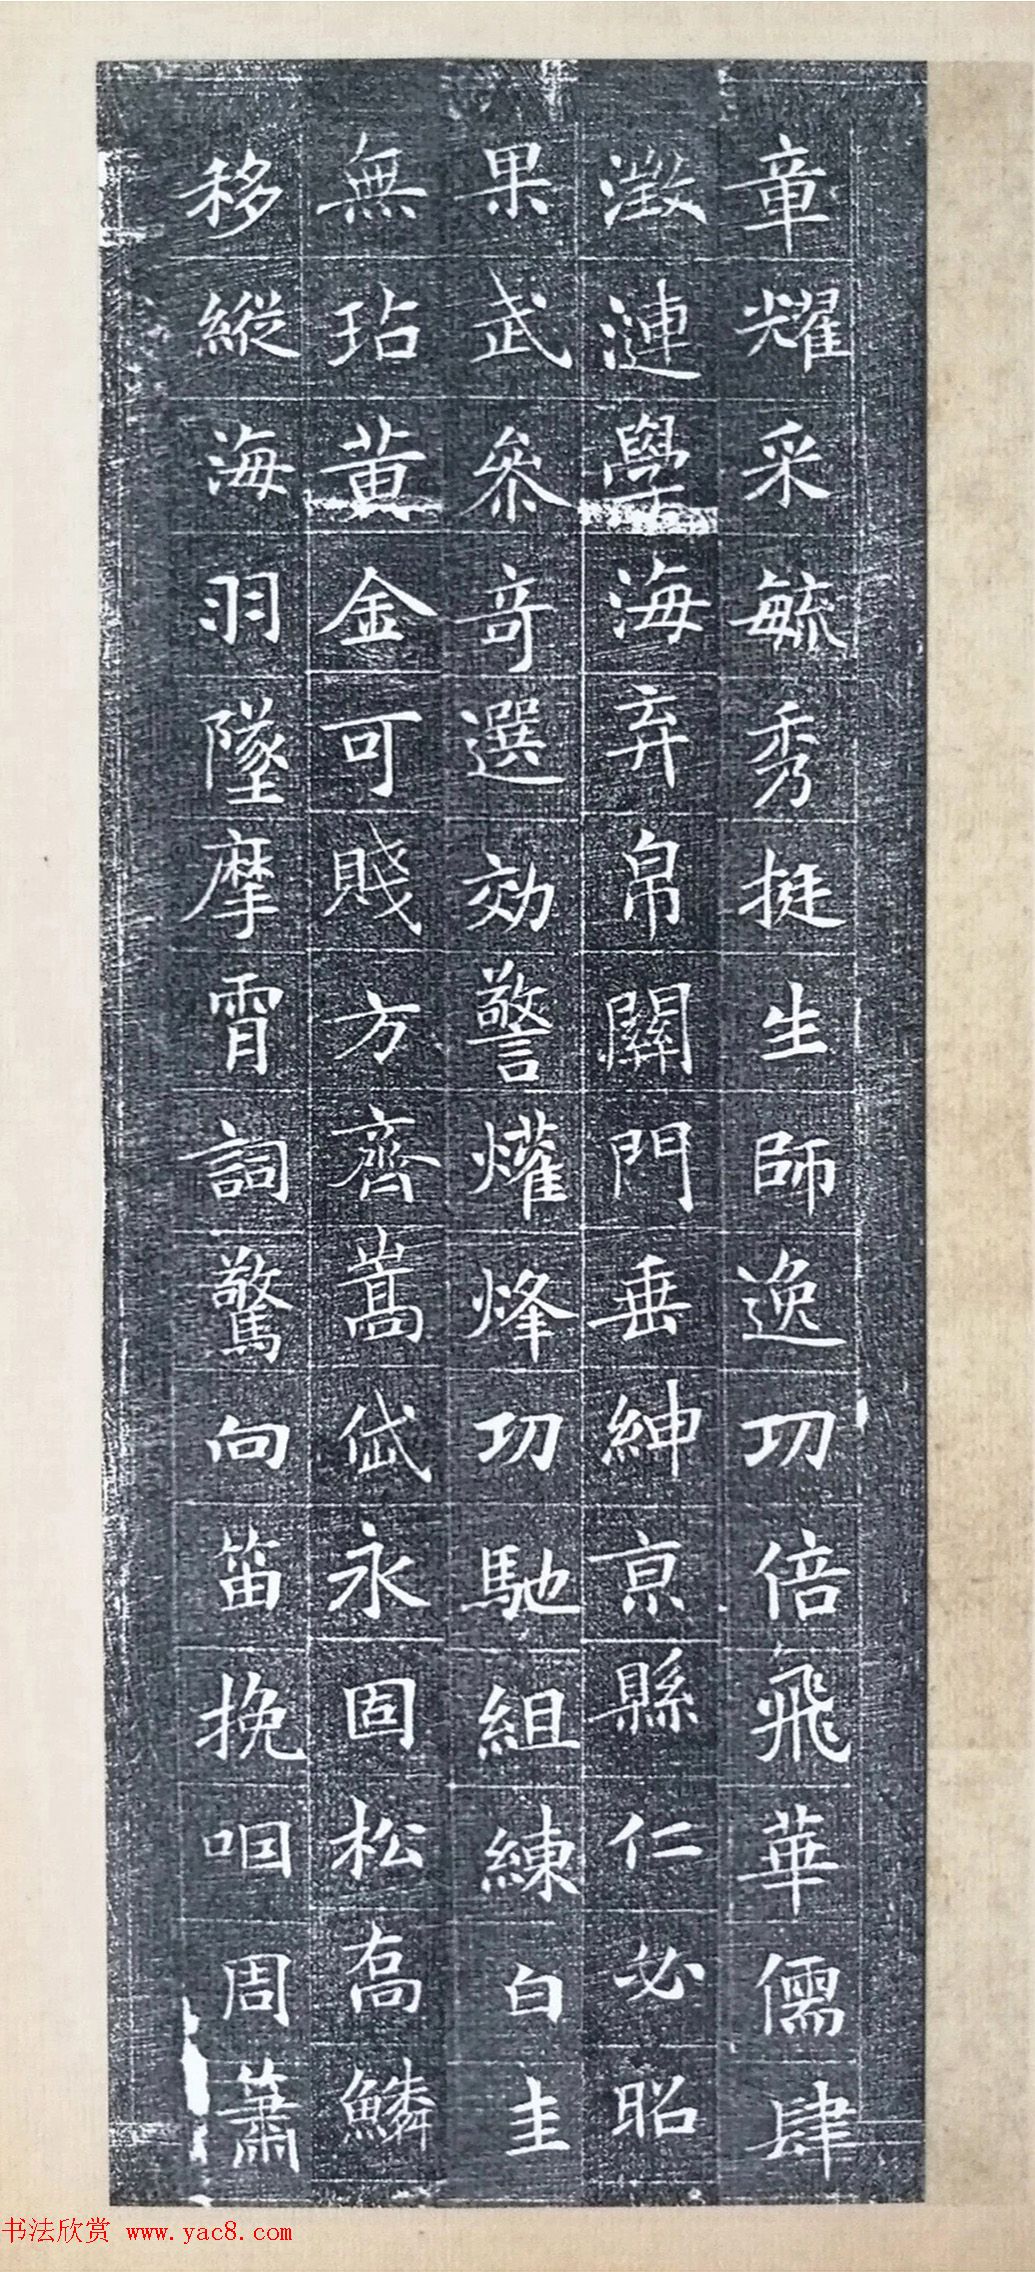 章耀采毓秀挺生師逸功倍飛華儒肆
澂漣學海弃帛關門垂紳京縣仁必昭
果武参奇選効警爟烽功馳組練白圭
無玷黃金可賤方齊嵩岱永固松高鱗
移縱海羽墜摩霄詞驚向笛挽咽周簫
书法欣赏 www.yac8.com